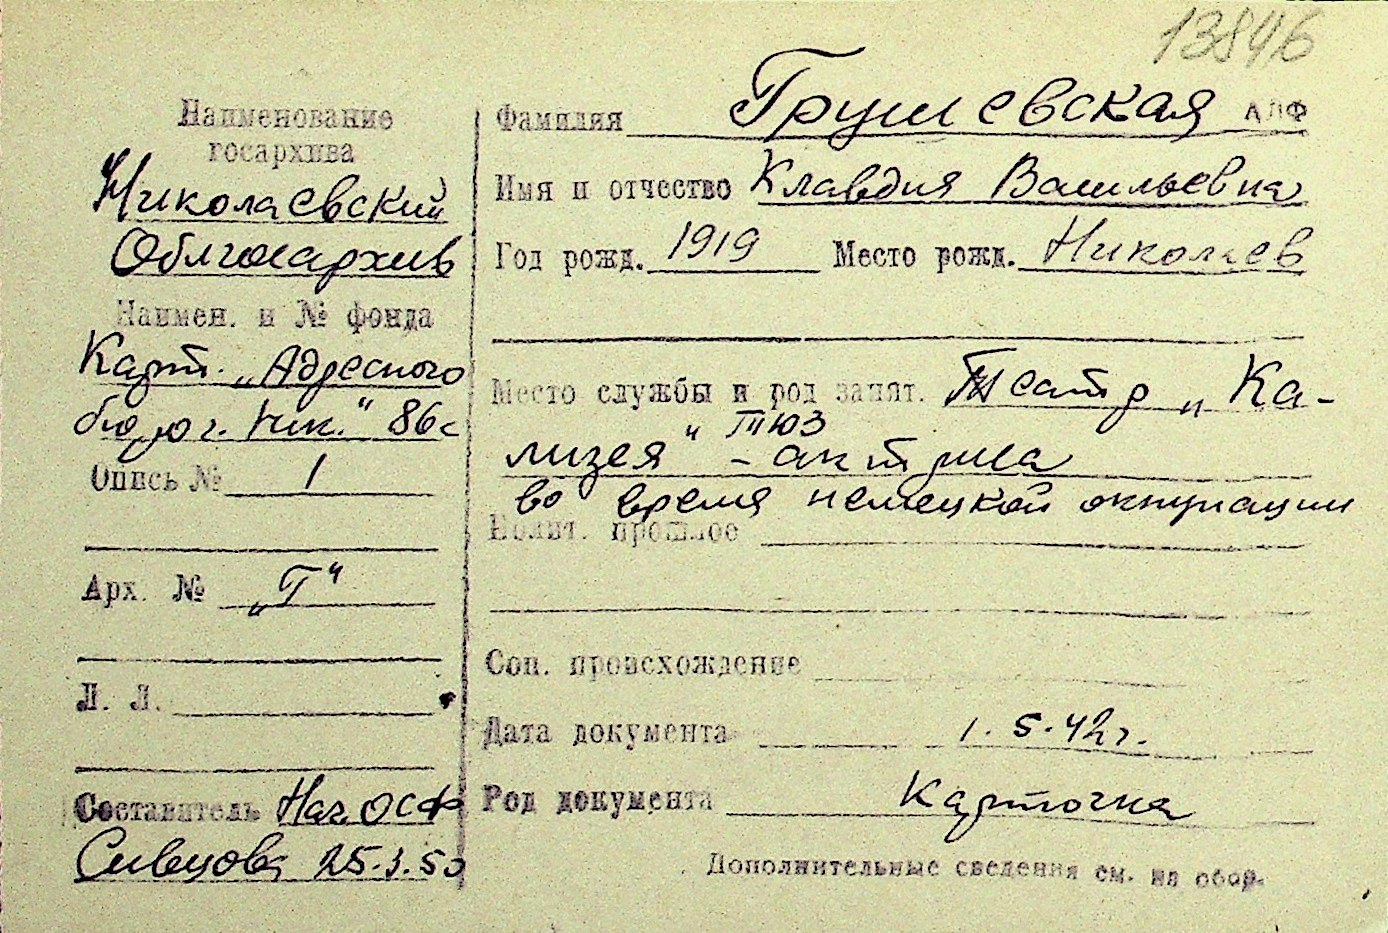 13846
Наименование
госархива
Николаевский
Облгосархив
Наимен. и № фонда
Карт. „Адресного
бюро г. Ник." 86с
Опись № 1
Арх. № „Г"
Л. Л.
Составитель Нач. ОСФ
Сивцова 25.3.50
Фамилия Грушевская АЛФ
Имя и отчество Клавдия Васильевна
Год рожд. 1919 Место рожд. Николаев
Место службы и род занят. Театр „Ка-
лизея" ТЮЗ - актриса
во время немецкой оккупации
Полит. прошлое
Соц. происхождение
Дата документа 1.5.42г.
Род документа Карточка
Дополнительные сведения см. на обор.